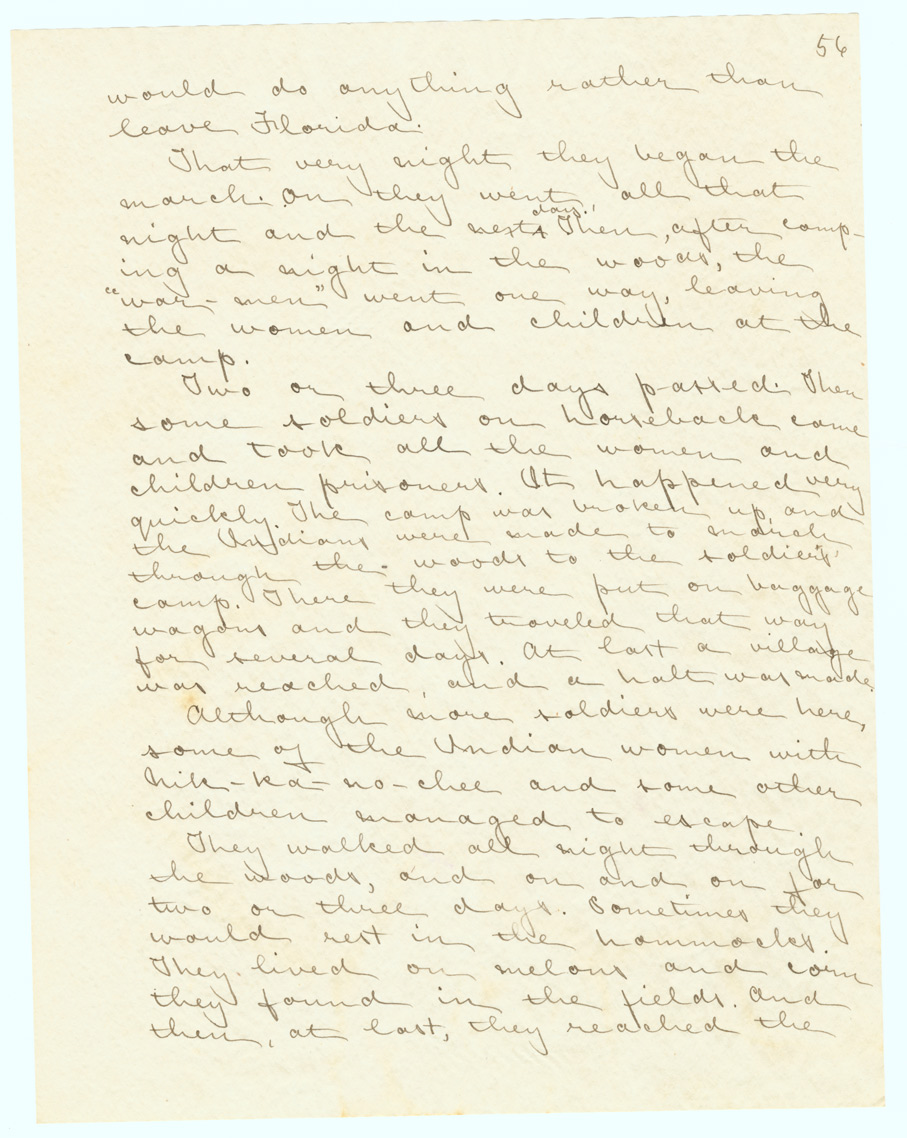 56
would do anything rather than
leave Florida.
That very night they began the
march. On they went, all that
night and the next day. Then, after camp-
ing a night in the woods, the
"war-men" went one way, leaving
the women and children at the
camp.
Two or three days passed. Then
some soldiers on horseback came
and took all the women and
children prisoners. It happened very
quickly. The camp was broken up, and
the Indians were made to march
through the woods to the soldiers'
camp. There they were put on baggage
wagons and they traveled that way
for several days. At last a village
was reached, and a halt was made.
Although more soldiers were here,
some of the Indian women with
Nik-ka-no-chee and some other
children managed to escape.
They walked all night through
the woods, and on and on for
two or three days. Sometimes they
would rest in the hommocks.
They lived on melons and corn
they found in the fields. And
then, at last, they reached the